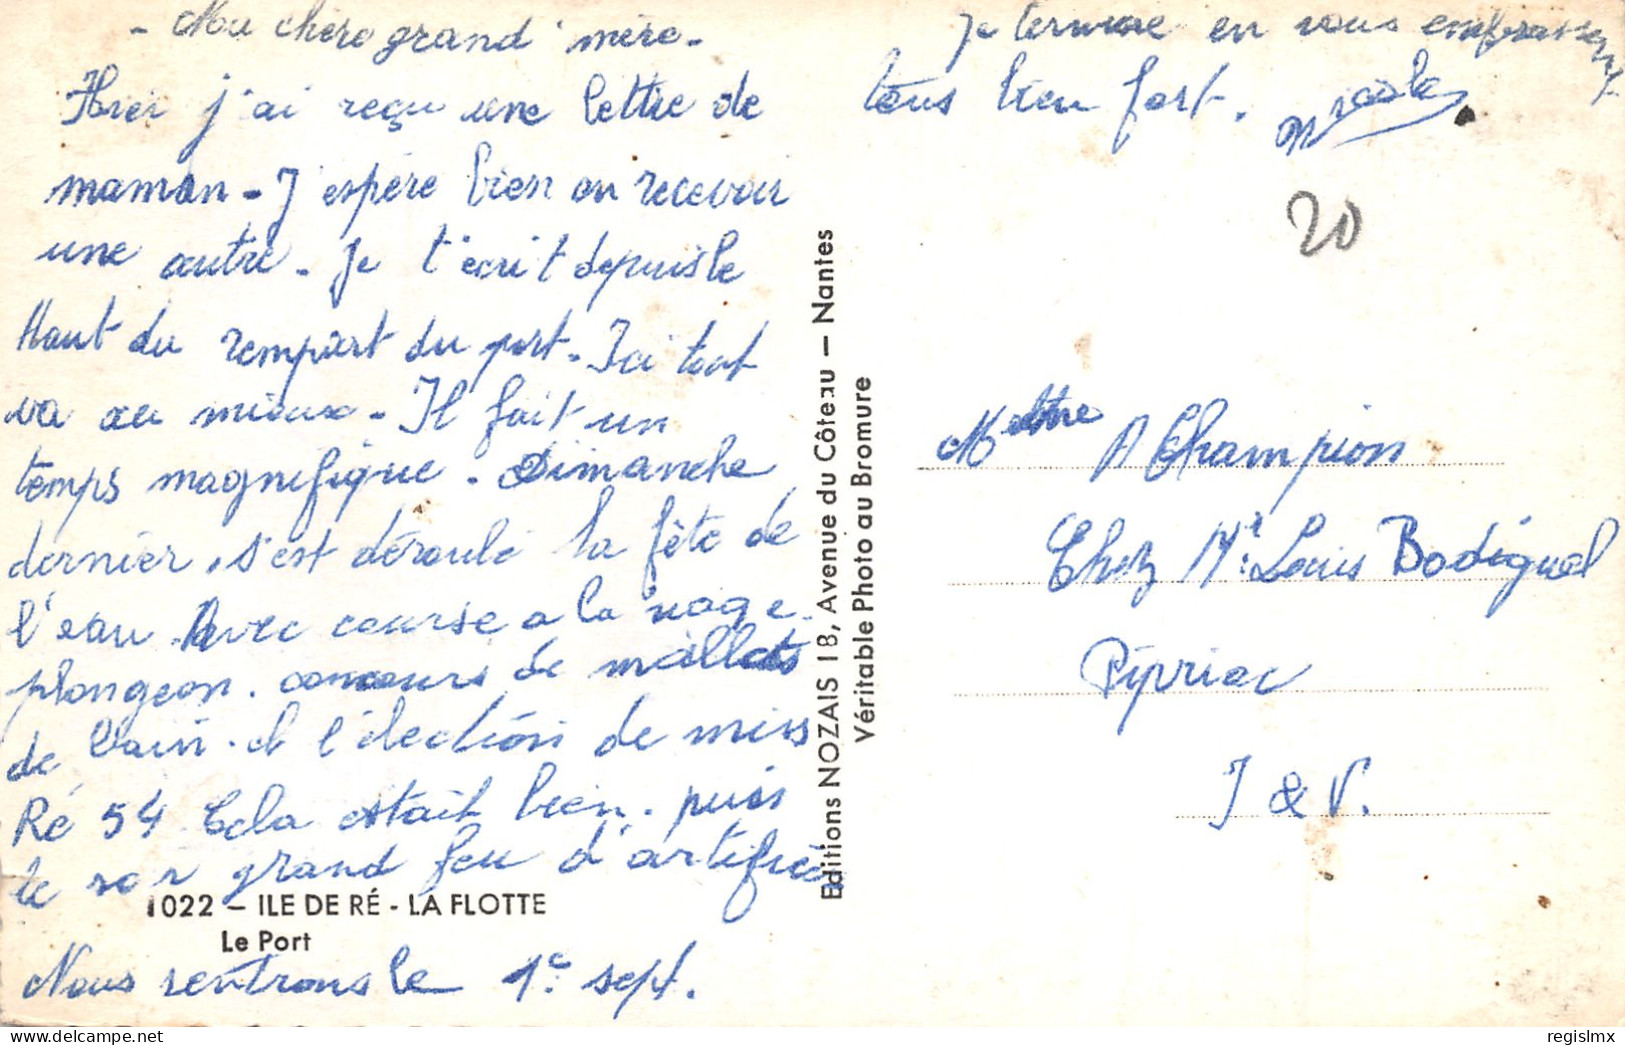 - Ma chère grand' mère -
Hier j'ai reçu une lettre de
maman - J'espère bien en recevoir
une autre - Je t'écrit depuis le
Haut du rempart du port - Ici tout
va au mieux - Il fait un
temps magnifique . Dimanche
dernier, s'est déroulé la fête de
l'eau Avec course a la nage -
plongeon . concours de maillots
de bain . et l'élection de miss
Ré 54 Cela était bien . puis
le soir grand feu d'artifice
1022 – ILE DE RÉ - LA FLOTTE
Le Port
Nous rentrons le 1e sept.
Editions NOZAIS 18, Avenue du Côteau — Nantes
Véritable Photo au Bromure
Je termine en vous embrassent
tous bien fort . Nicole
20
A Champion
Chez Mr. Louis Bodiguel
Pipriac
I & V.
regislmx